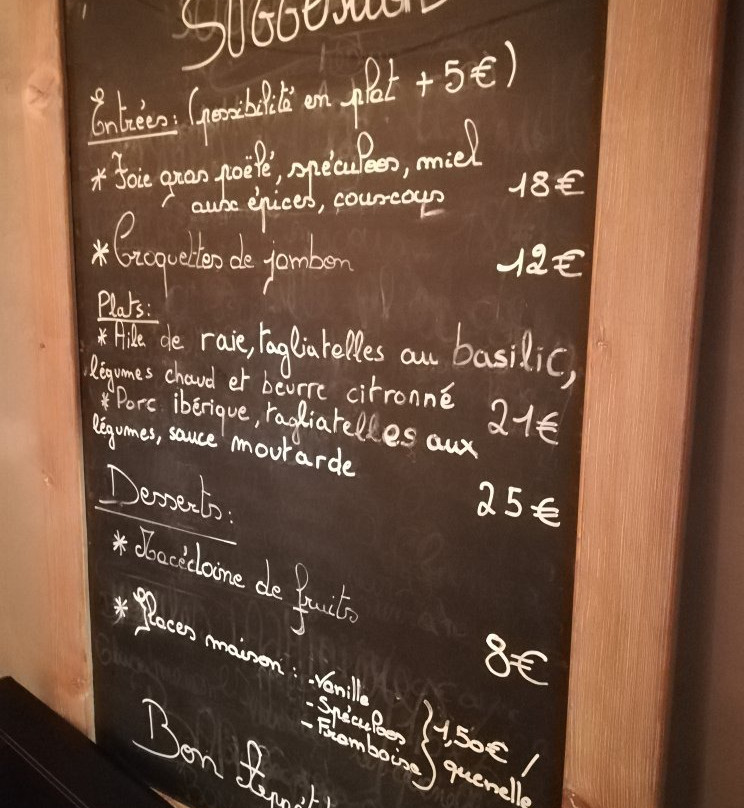 Suggestions
Entrées: (possibilité en plat + 5€)
* Foie gras poëlé, spéculoos, miel
aux épices, couscous 18€
* Croquettes de jambon 12€
Plats:
* Aile de raie, tagliatelles au basilic,
légumes chaud et beurre citronné 21€
* Porc ibérique, tagliatelles aux
légumes, sauce moutarde 25€
Desserts:
* Macédoine de fruits 8€
* Glaces maison : - Vanille
- Spéculoos
- Framboise } 1,50€ / quenelle
Bon